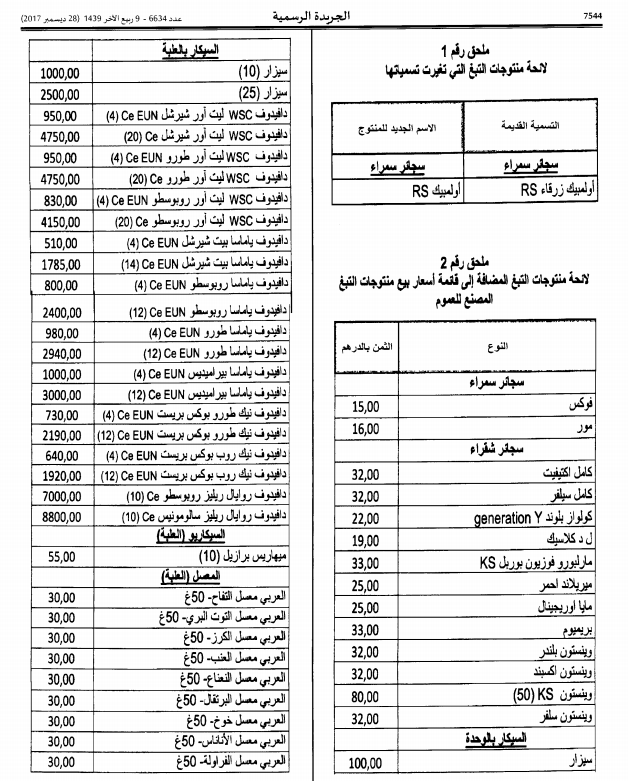 7544
الجريدة الرسمية
عدد 6634 - 9 ربيع الآخر 1439 (28 ديسمبر 2017)
ملحق رقم 1
لائحة منتوجات التبغ التي تغيرت تسمياتها
التسمية القديمة	الاسم الجديد للمنتوج
سجائر سمراء	سجائر سمراء
أولمبيك زرقاء RS	أولمبيك RS
ملحق رقم 2
لائحة منتوجات التبغ المضافة إلى قائمة أسعار بيع منتوجات التبغ
المصنع للعموم
النوع	الثمن بالدرهم
سجائر سمراء
فوكس	15,00
مور	16,00
سجائر شقراء
كامل اكتيفيت	32,00
كامل سيلفر	32,00
كولواز بلوند generation Y	22,00
ل د كلاسيك	19,00
مارلبورو فوزيون بوريل KS	33,00
ميريلاند احمر	25,00
مايا أوريجينال	25,00
بريميوم	33,00
وينستون بلندر	32,00
وينستون اكسبند	32,00
وينستون KS (50)	80,00
وينستون سلفر	32,00
السيكار بالوحدة
سيزار	100,00
السيكار بالعلبة
سيزار (10)	1000,00
سيزار (25)	2500,00
دافيدوف WSC ليت أور شيرشل Ce EUN (4)	950,00
دافيدوف WSC ليت أور شيرشل Ce (20)	4750,00
دافيدوف WSC ليت أور طورو Ce EUN (4)	950,00
دافيدوف WSC ليت أور طورو Ce (20)	4750,00
دافيدوف WSC ليت أور روبوسطو Ce EUN (4)	830,00
دافيدوف WSC ليت أور روبوسطو Ce (20)	4150,00
دافيدوف ياماسا بيت شيرشل Ce EUN (4)	510,00
دافيدوف ياماسا بيت شيرشل Ce EUN (14)	1785,00
دافيدوف ياماسا روبوسطو Ce EUN (4)	800,00
دافيدوف ياماسا روبوسطو Ce EUN (12)	2400,00
دافيدوف ياماسا طورو Ce EUN (4)	980,00
دافيدوف ياماسا طورو Ce EUN (12)	2940,00
دافيدوف ياماسا بيراميديس Ce EUN (4)	1000,00
دافيدوف ياماسا بيراميديس Ce EUN (12)	3000,00
دافيدوف نيك طورو بوكس بريست Ce EUN (4)	730,00
دافيدوف نيك طورو بوكس بريست Ce EUN (12)	2190,00
دافيدوف نيك روب بوكس بريست Ce EUN (4)	640,00
دافيدوف نيك روب بوكس بريست Ce EUN (12)	1920,00
دافيدوف روايال ريليز روبوسطو Ce (10)	7000,00
دافيدوف روايال ريليز سالومونيس Ce (10)	8800,00
السيكاريو (العلبة)
ميهاريس برازيل (10)	55,00
المعسل (العلبة)
العربي معسل التفاح- 50غ	30,00
العربي معسل التوت البري- 50غ	30,00
العربي معسل الكرز- 50غ	30,00
العربي معسل العنب- 50غ	30,00
العربي معسل النعناع- 50غ	30,00
العربي معسل البرتقال- 50غ	30,00
العربي معسل خوخ- 50غ	30,00
العربي معسل الأناناس- 50غ	30,00
العربي معسل الفراولة- 50غ	30,00